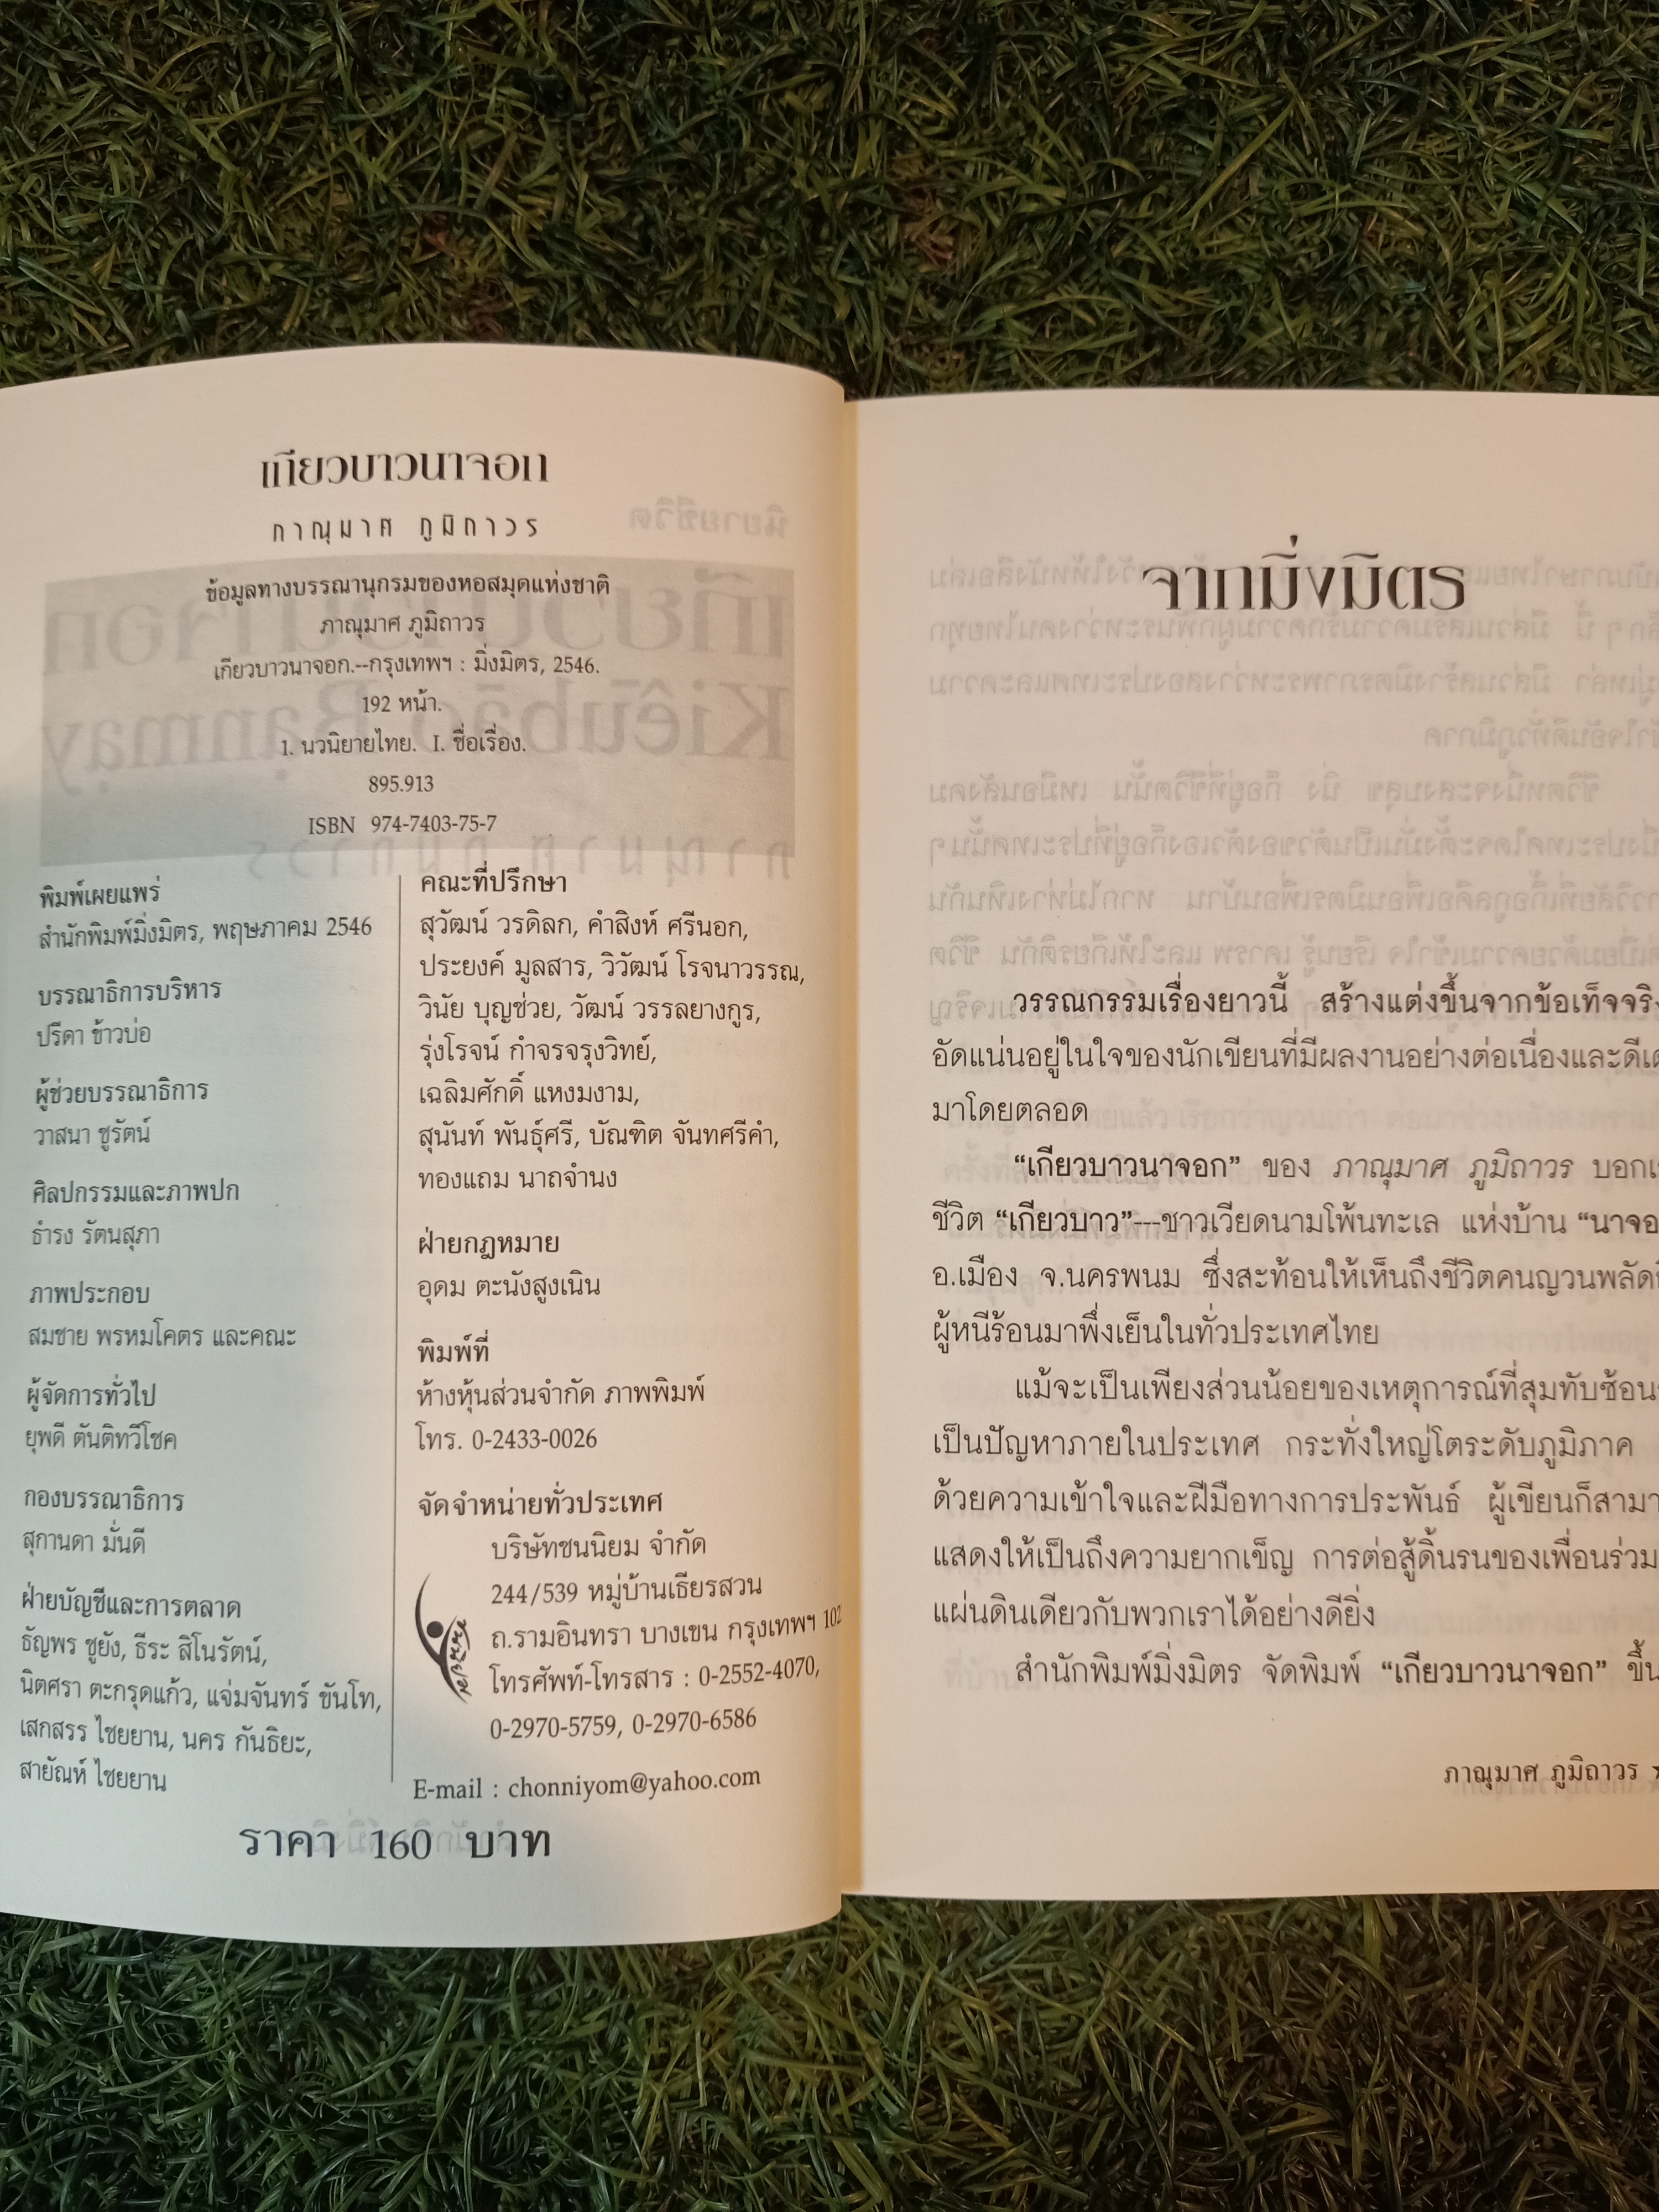 เกียวบาวนาจอก
ภาณุมาศ ภูมิถาวร
ข้อมูลทางบรรณานุกรมของหอสมุดแห่งชาติ
ภาณุมาศ ภูมิถาวร
เกียวบาวนาจอก.--กรุงเทพฯ : มิ่งมิตร, 2546.
192 หน้า.
1. นวนิยายไทย. I. ชื่อเรื่อง.
895.913
ISBN 974-7403-75-7
พิมพ์เผยแพร่
สำนักพิมพ์มิ่งมิตร, พฤษภาคม 2546
บรรณาธิการบริหาร
ปรีดา ข้าวบ่อ
ผู้ช่วยบรรณาธิการ
วาสนา ชูรัตน์
ศิลปกรรมและภาพปก
ธำรง รัตนสุภา
ภาพประกอบ
สมชาย พรหมโคตร และคณะ
ผู้จัดการทั่วไป
ยุพดี ตันติทวีโชค
กองบรรณาธิการ
สุกานดา มั่นดี
ฝ่ายบัญชีและการตลาด
ธัญพร ชูยัง, ธีระ สิโนรัตน์,
นิตศรา ตะกรุดแก้ว, แจ่มจันทร์ ขันโท,
เสกสรร ไชยยาน, นคร กันธิยะ,
สายัณห์ ไชยยาน
คณะที่ปรึกษา
สุวัฒน์ วรดิลก, คำสิงห์ ศรีนอก,
ประยงค์ มูลสาร, วิวัฒน์ โรจนาวรรณ,
วินัย บุญช่วย, วัฒน์ วรรลยางกูร,
รุ่งโรจน์ กำจรจรุงวิทย์,
เฉลิมศักดิ์ แหงมงาม,
สุนันท์ พันธุ์ศรี, บัณฑิต จันทศรีคำ,
ทองแถม นาถจำนง
ฝ่ายกฎหมาย
อุดม ตะนังสูงเนิน
พิมพ์ที่
ห้างหุ้นส่วนจำกัด ภาพพิมพ์
โทร. 0-2433-0026
จัดจำหน่ายทั่วประเทศ
บริษัทชนนิยม จำกัด
244/539 หมู่บ้านเธียรสวน
ถ.รามอินทรา บางเขน กรุงเทพฯ 102
โทรศัพท์-โทรสาร : 0-2552-4070,
0-2970-5759, 0-2970-6586
ชนนิยม
E-mail : chonniyom@yahoo.com
ราคา 160 บาท
จากมิ่งมิตร
วรรณกรรมเรื่องยาวนี้ สร้างแต่งขึ้นจากข้อเท็จจริง
อัดแน่นอยู่ในใจของนักเขียนที่มีผลงานอย่างต่อเนื่องและดีเด
มาโดยตลอด
“เกียวบาวนาจอก” ของ ภาณุมาศ ภูมิถาวร บอกเ
ชีวิต “เกียวบาว”---ชาวเวียดนามโพ้นทะเล แห่งบ้าน “นาจอ
อ.เมือง จ.นครพนม ซึ่งสะท้อนให้เห็นถึงชีวิตคนญวนพลัด
ผู้หนีร้อนมาพึ่งเย็นในทั่วประเทศไทย
แม้จะเป็นเพียงส่วนน้อยของเหตุการณ์ที่สุมทับซ้อน
เป็นปัญหาภายในประเทศ กระทั่งใหญ่โตระดับภูมิภาค
ด้วยความเข้าใจและฝีมือทางการประพันธ์ ผู้เขียนก็สามา
แสดงให้เป็นถึงความยากเข็ญ การต่อสู้ดิ้นรนของเพื่อนร่วม
แผ่นดินเดียวกับพวกเราได้อย่างดียิ่ง
สำนักพิมพ์มิ่งมิตร จัดพิมพ์ “เกียวบาวนาจอก” ขึ้น
ภาณุมาศ ภูมิถาวร